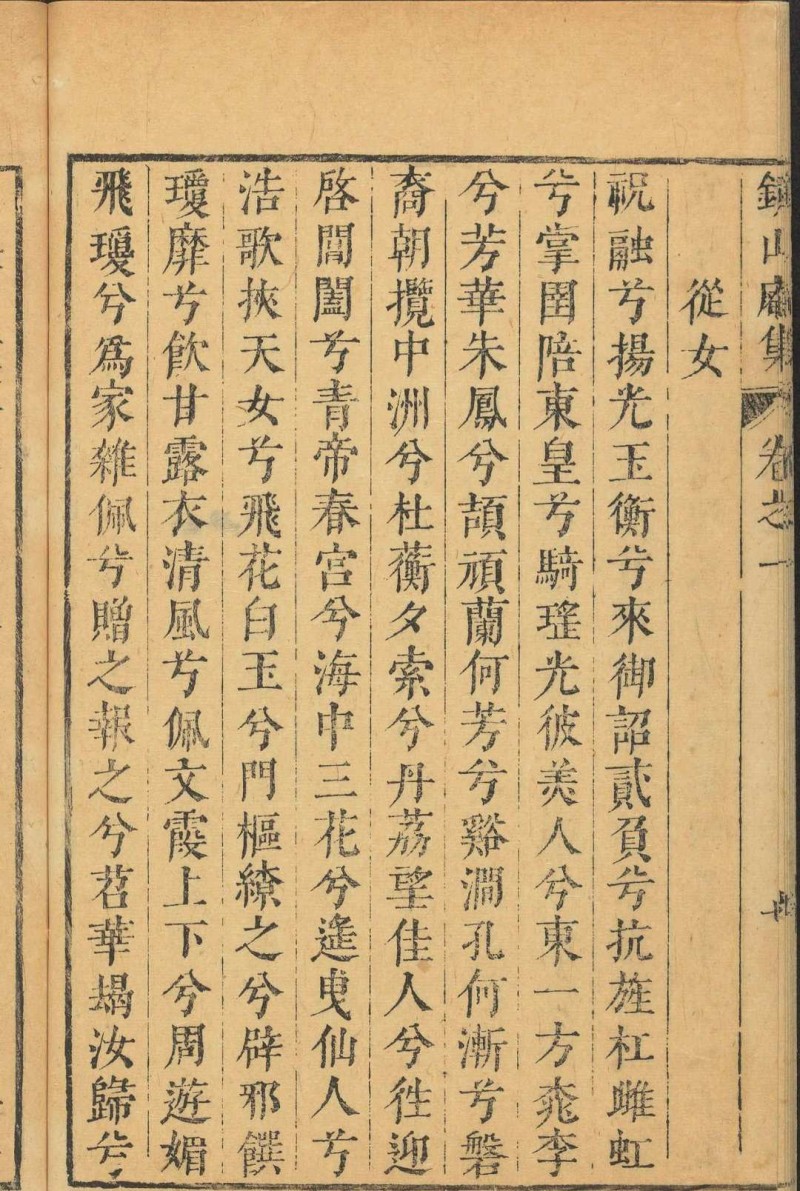 鎮山庵集 卷之一
從女
祝融兮揚光玉衡兮來御詔貳負兮抗旌杠雌虹
兮掌圉陪東皇兮騎瑤光彼美人兮東一方窕李
兮芳華朱鳳兮頡頏蘭何芳兮谿澗孔何漸兮磐
裔朝攬中洲兮杜蘅夕索兮丹荔望佳人兮徃迎
啓閶闔兮青帝春宮兮海中三花兮遙曳仙人兮
浩歌挾天女兮飛花白玉兮門樞繚之兮辟邪饌
瓊靡兮飲甘露衣清風兮佩文霞上下兮周遊媚
飛瓊兮爲家雜佩兮贈之報之兮苕華朅汝歸兮